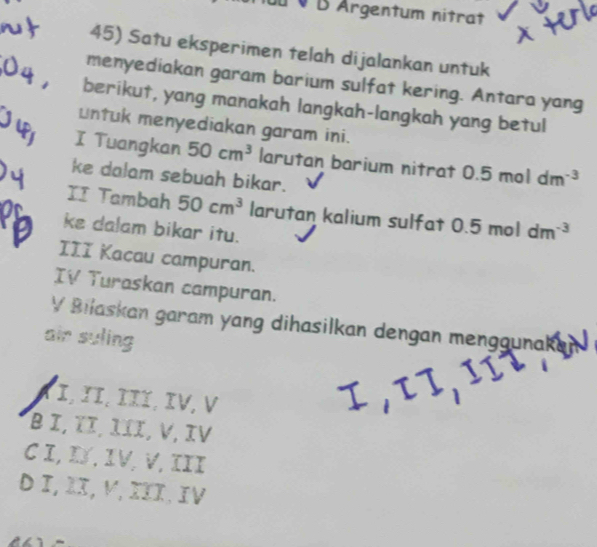 D Argentum nitrat ✓
x
45) Satu eksperimen telah dijalankan untuk
menyediakan garam barium sulfat kering. Antara yang
berikut, yang manakah langkah-langkah yang betul
untuk menyediakan garam ini.
I Tuangkan 50 cm³ larutan barium nitrat 0.5 mol dm⁻³
ke dalam sebuah bikar. ✓
II Tambah 50 cm³ larutan kalium sulfat 0.5 mol dm⁻³
ke dalam bikar itu. ✓
III Kacau campuran.
IV Turaskan campuran.
V Bilaskan garam yang dihasilkan dengan menggunakan
air suling
I, II, III, IV
A I, II, III, IV, V
B I, II, III, V, IV
C I, II, IV, V, III
D I, II, V, III, IV